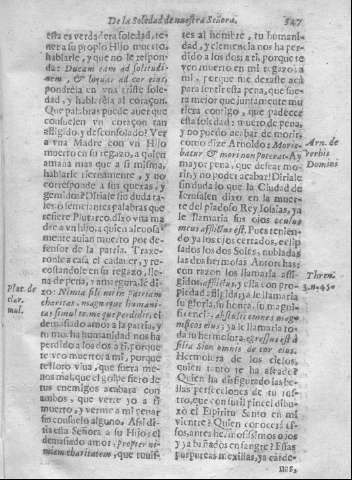 De la Soledad de nuestra Señora. 547
esta es verdadera soledad, te-
ner a su propio Hijo muerto,
hablarle, y que no le respon-
da: Ducam eam ad solitudi-
nem, & loquar ad cor eius,
pondréla en vna triste sole-
dad, y hablaréla al coraçon.
Que palabras puede auer que
consuelen vn coraçon tan
affligido y desconsolado? Ver
a vna Madre con vn Hijo
muerto en su regazo, a quien
amaua mas que a si misma,
hablarle tiernamente, y no
corresponde a sus quexas, y
gemidos? Diriale sin duda ta-
les o semejantes palabras que
refiere Plutarco dixo vna ma-
dre a vn hijo, a quien
mente auian muerto por de-
fensor de la patria. Traxe-
ronle a casa el cadauer, y re-
costandole en su regazo, lle-
na de pena, y amargura le di-
xo: Nimia fili mi in patriam
charitas, magnaque humani-
tas simul te, meque perdidit, el
demasiado amor a la patria, y
tu mucha humanidad nos ha
perdido a los dos a ti, porque
te veo muerto; a mi, porque
te lloro viua, que fuera me-
nos mal, que el golpe fiero de
tus enemigos acabara con
ambos, que verte yo a ti
muerto, y verme a mi penar
sin consuelo alguno. Assi di-
ria esta Señora a su Hijo: el
demasiado amor, propter ni-
miam charitatem, que tuuis-
Plut. de
clar.
mul.
tes al hombre, tu humani-
dad, y clemencia nos ha per-
dido a los dos; a ti, porque te
veo muerto en mi regazo; a
mi, porque me dexaste acá
para sentir esta pena, que fue-
ra mejor que juntamente mu-
riera contigo, que padecer
esta soledad: muero de pena,
y no puedo acabar de morir,
como dize Arnoldo: Morie-
batur & mori non poterat. Ay
mayor pena, que desear mo-
rir, y no poder acabar! Diriale
sin duda lo que la Ciudad de
Ierusalen dixo en la muer-
te del piadoso Rey Iosias, ya
le llamaria sus ojos oculus
meus afflictus est. Pues tenien-
do ya los ojos cerrados, eclip-
sados los dos Soles, nubladas
las dos hermosas Antorchas;
con razon los llamaria affli-
gidos, afflictus, y ella con pro-
piedad affligida; ya le llamaria
su gloria, su honra, su magni-
ficencia: Abstulit omnes magn-
nificos eius; ya le llamaria to-
da su hermosura, egressus est a
filia Sion omnis decor eius.
Hermosura de los cielos,
quien tanto te ha afeado?
Quien ha disfigurado las be-
llas perfecciones de tu ros-
tro, que con sutil pincel dibu-
xó el Espiritu Santo en mi
vientre? Quien con ossos
sos, antes hermosissimos ojos
y ya bañados en sangre? Essas
purpureas mexillas, ya carde-
nas,
Arn. de
verbis
Domini
Thren.
3. n. 450